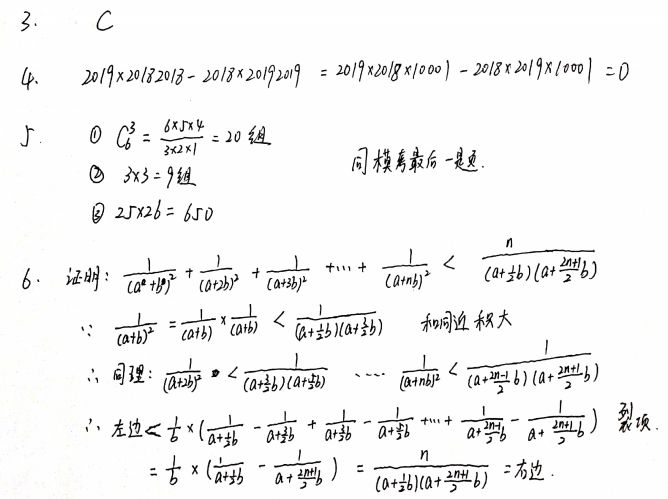 3. C
4. 2019×20182018-2018×20192019 = 2019×2018×10001-2018×2019×10001 =0
5 ① C₆³ = (6×5×4)/(3×2×1) = 20组
同模考最后一题.
② 3×3=9组
③ 25×26=650
6. 证明: 1/(a+b)² + 1/(a+2b)² + 1/(a+3b)² +…+ 1/(a+nb)² < n/((a+½b)(a+(2n+1)/2 b))
∵ 1/(a+b)² = 1/(a+b) × 1/(a+b) < 1/((a+½b)(a+3/2 b)) 和同近积大
∴ 同理: 1/(a+2b)² < 1/((a+3/2 b)(a+5/2 b)) …. 1/(a+nb)² < 1/((a+(2n-1)/2 b)(a+(2n+1)/2 b))
∴ 左边< 1/b × (1/(a+½b) - 1/(a+3/2 b) + 1/(a+3/2 b) - 1/(a+5/2 b) +…+ 1/(a+(2n-1)/2 b) - 1/(a+(2n+1)/2 b)) 裂项.
= 1/b × (1/(a+½b) - 1/(a+(2n+1)/2 b)) = n/((a+½b)(a+(2n+1)/2 b)) =右边.